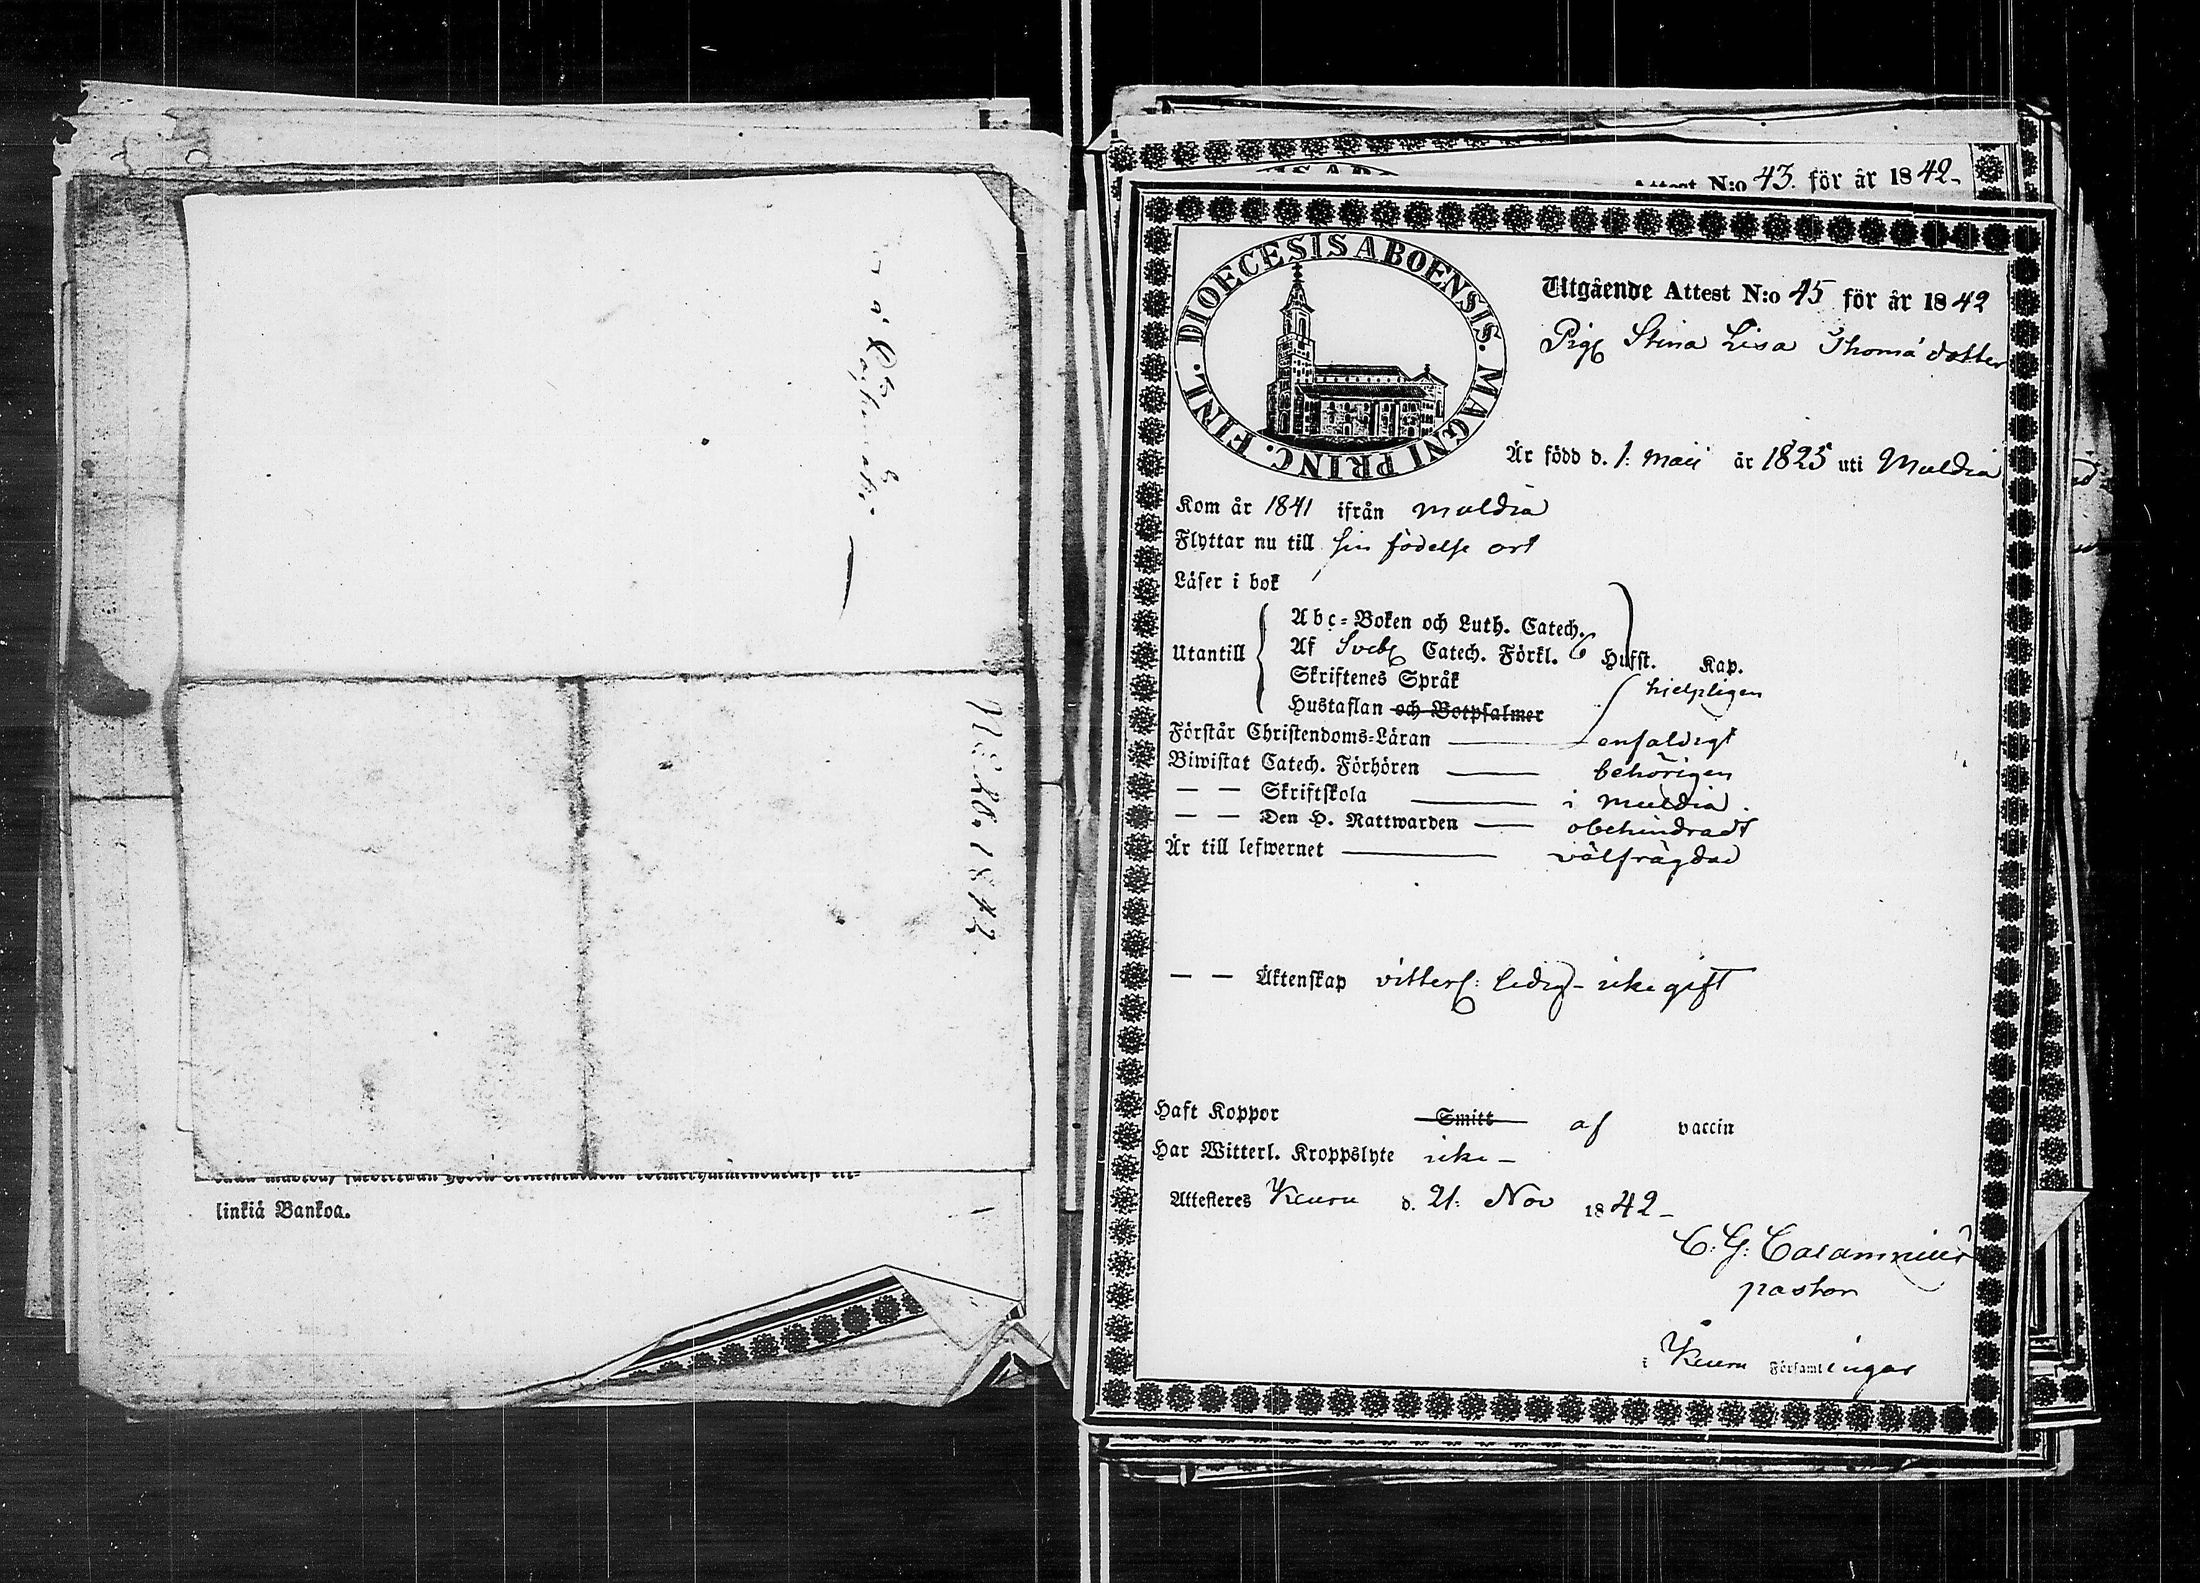 Uskb. 1842.
linkiä Bankoa.
Attest N:o 43. för år 1842-
DIOECESIS ABOENSIS. MAGNI PRINC. FINL.
Utgående Attest N:o 45 för år 1842
Pig. Stina Lisa Thomádotter
Är född d. 1: Maii år 1825 uti Muldia
Kom år 1841 ifrån Muldia
Flyttar nu till sin födelse ort
Läser i bok
Utantill
Abc-Boken och Luth. Catech.
Af Sveb. Catech. Förkl. 6 Hufst. Kap.
Skriftenes Språk
hjelpligen
Hustaflan och Botpsalmer
Förstår Christendoms-Läran — enfaldigt
Biwistat Catech. Förhören — behörigen
— — Skriftskola — i Muldia.
— — Den H. Nattwarden — obehindradt
Är till lefwernet — välfrägdad
— — Äktenskap vitterl: ledig - icke gift
Haft Koppor Smitt af vaccin
Har Witterl. Kroppslyte icke -
Attesteres Keuru d. 21: Nov 1842 -
C: G: Calamnius
pastor
i Keuru Församlingar